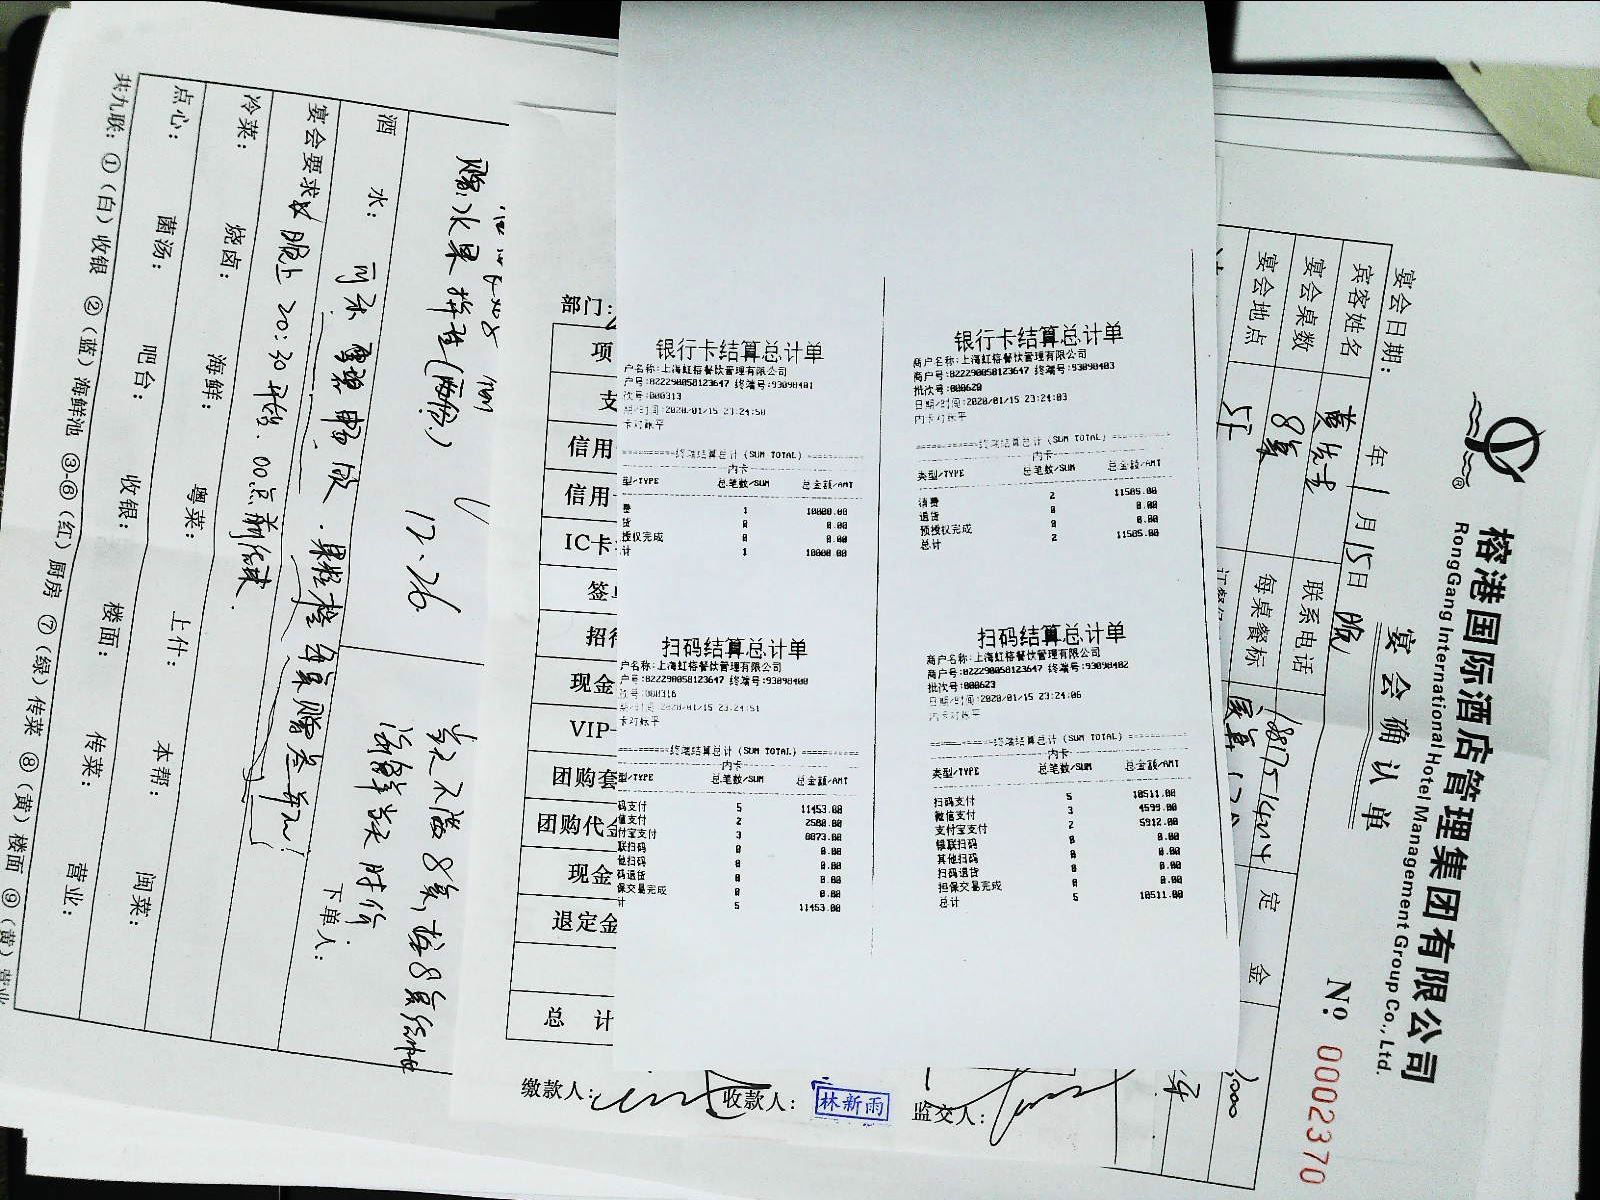 银行卡结算总计单
户名称:上海虹榕餐饮管理有限公司
户号:822290058123647 终端号:93098401
次号:000313
期/时间:2020/01/15 23:24:50
卡对账平
==========终端结算总计(SUM TOTAL)==========
内卡
型/TYPE 总笔数/SUM 总金额/AMT
费 1 10000.00
货 0 0.00
授权完成 0 0.00
计 1 10000.00
银行卡结算总计单
商户名称:上海虹榕餐饮管理有限公司
商户号:822290058123647 终端号:93098403
批次号:000620
日期/时间:2020/01/15 23:24:03
内卡对账平
==========终端结算总计(SUM TOTAL)==========
内卡
类型/TYPE 总笔数/SUM 总金额/AMT
消费 2 11505.00
退货 0 0.00
预授权完成 0 0.00
总计 2 11505.00
扫码结算总计单
户名称:上海虹榕餐饮管理有限公司
户号:822290058123647 终端号:93098400
次号:000316
期/时间:2020/01/15 23:24:51
卡对账平
==========终端结算总计(SUM TOTAL)==========
内卡
型/TYPE 总笔数/SUM 总金额/AMT
码支付 5 11453.00
信支付 2 2580.00
付宝支付 3 8873.00
联扫码 0 0.00
他扫码 0 0.00
码退货 0 0.00
保交易完成 0 0.00
计 5 11453.00
扫码结算总计单
商户名称:上海虹榕餐饮管理有限公司
商户号:822290058123647 终端号:93098402
批次号:000623
日期/时间:2020/01/15 23:24:06
内卡对账平
==========终端结算总计(SUM TOTAL)==========
内卡
类型/TYPE 总笔数/SUM 总金额/AMT
扫码支付 5 10511.00
微信支付 3 4599.00
支付宝支付 2 5912.00
银联扫码 0 0.00
其他扫码 0 0.00
扫码退货 0 0.00
担保交易完成 0 0.00
总计 5 10511.00
部门:
项
支
信用
信用
IC卡
签
招待
现金
VIP-
团购套
团购代金
现金
退定金
总 计
缴款人:
收款人: 林新雨
监交人:
榕港国际酒店管理集团有限公司
RongGang International Hotel Management Group Co., Ltd.
宴会确认单
№: 0002370
宴会日期: 年 1月15日 晚
宾客姓名 黄先生 联系电话
宴会桌数 8桌 每桌餐标 定金 1000
宴会地点
赠:水果拼盘(两份)
12.26
酒水:
宴会要求: 晚上20:30开始. 00点前结束.
当天不满8桌,按8桌结帐
海鲜当天时价
下单人:
冷菜: 烧卤: 海鲜: 粤菜: 上什: 本帮: 闽菜:
点心: 菌汤: 吧台: 收银: 楼面: 传菜: 营业:
共九联: ①(白)收银 ②(蓝)海鲜池 ③-⑥(红)厨房 ⑦(绿)传菜 ⑧(黄)楼面 ⑨(黄)营业